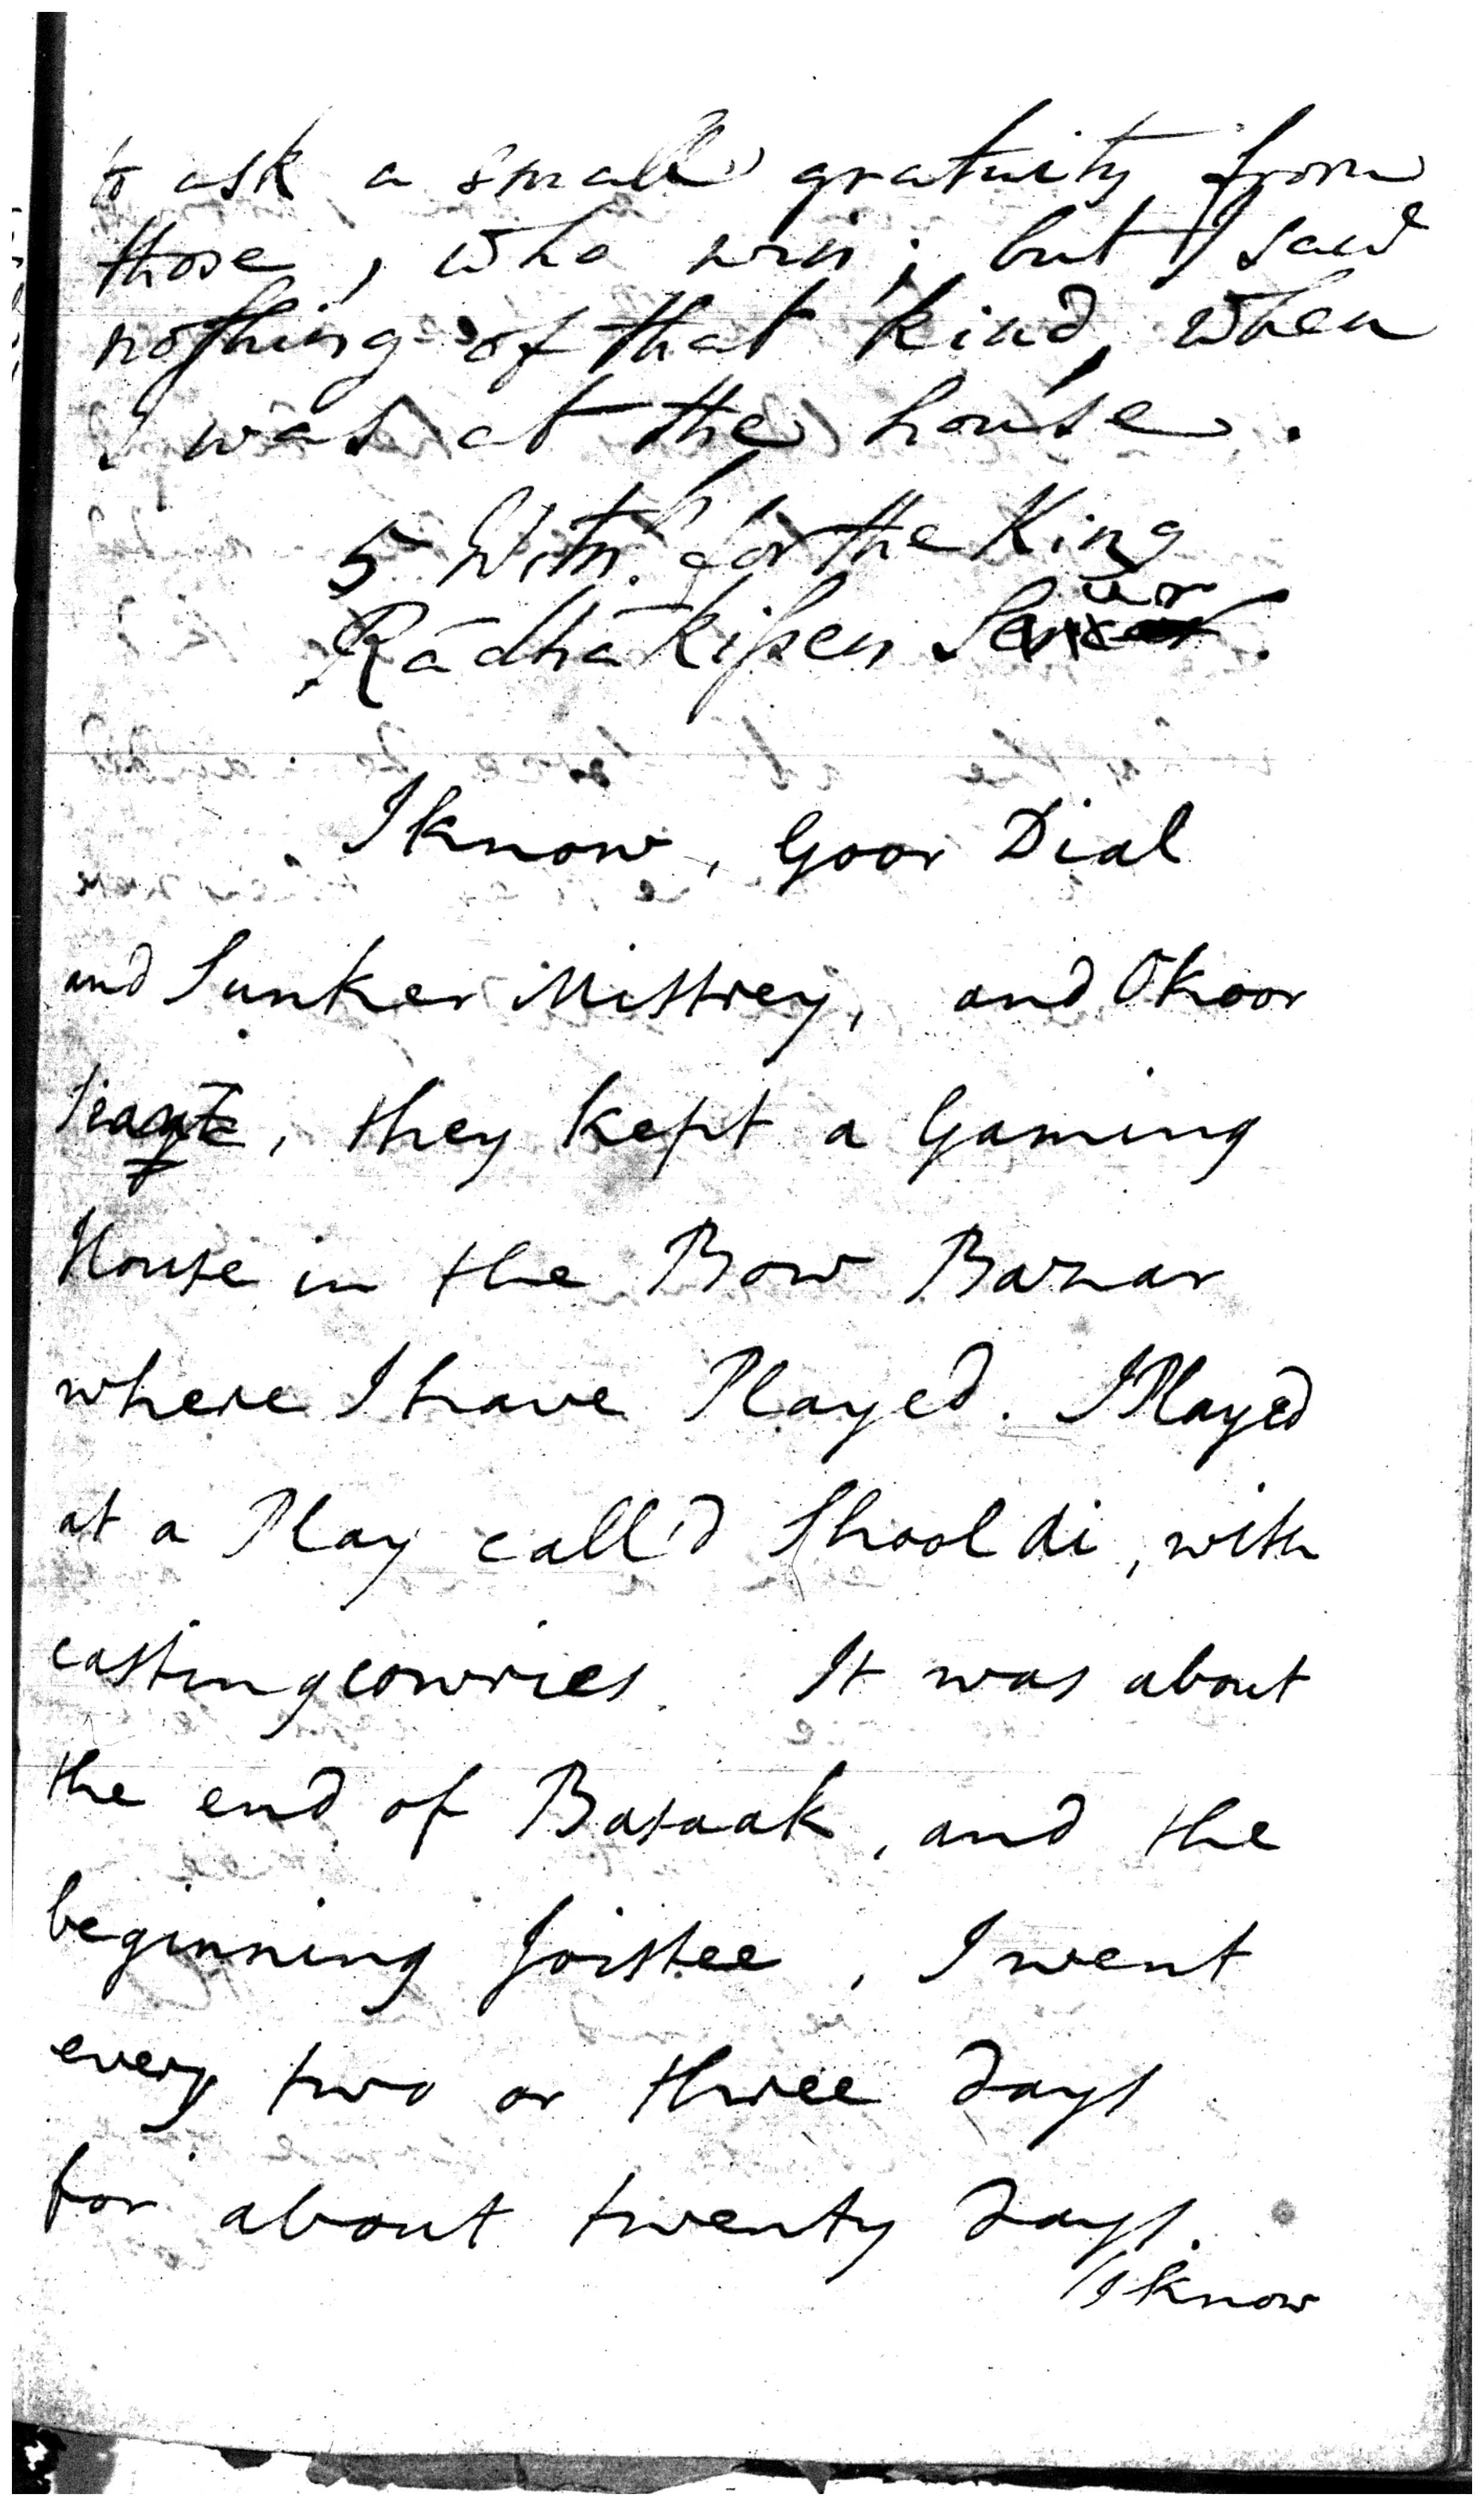 to ask a small gratuity from
those, who win; but I saw
nothing of that kind, when
I was at the house.
5 Witn. for the King
Rādhākissen
I know, Goor Dial
and Sunker Mistrey, and Okoor
, they kept a Gaming
House in the Bow Bazar
where I have Played. I Played
at a Play call'd Shooldi, with
casting cowries. It was about
the end of Basaak, and the
beginning Joistee, I went
every two or three days
for about twenty days.
I know